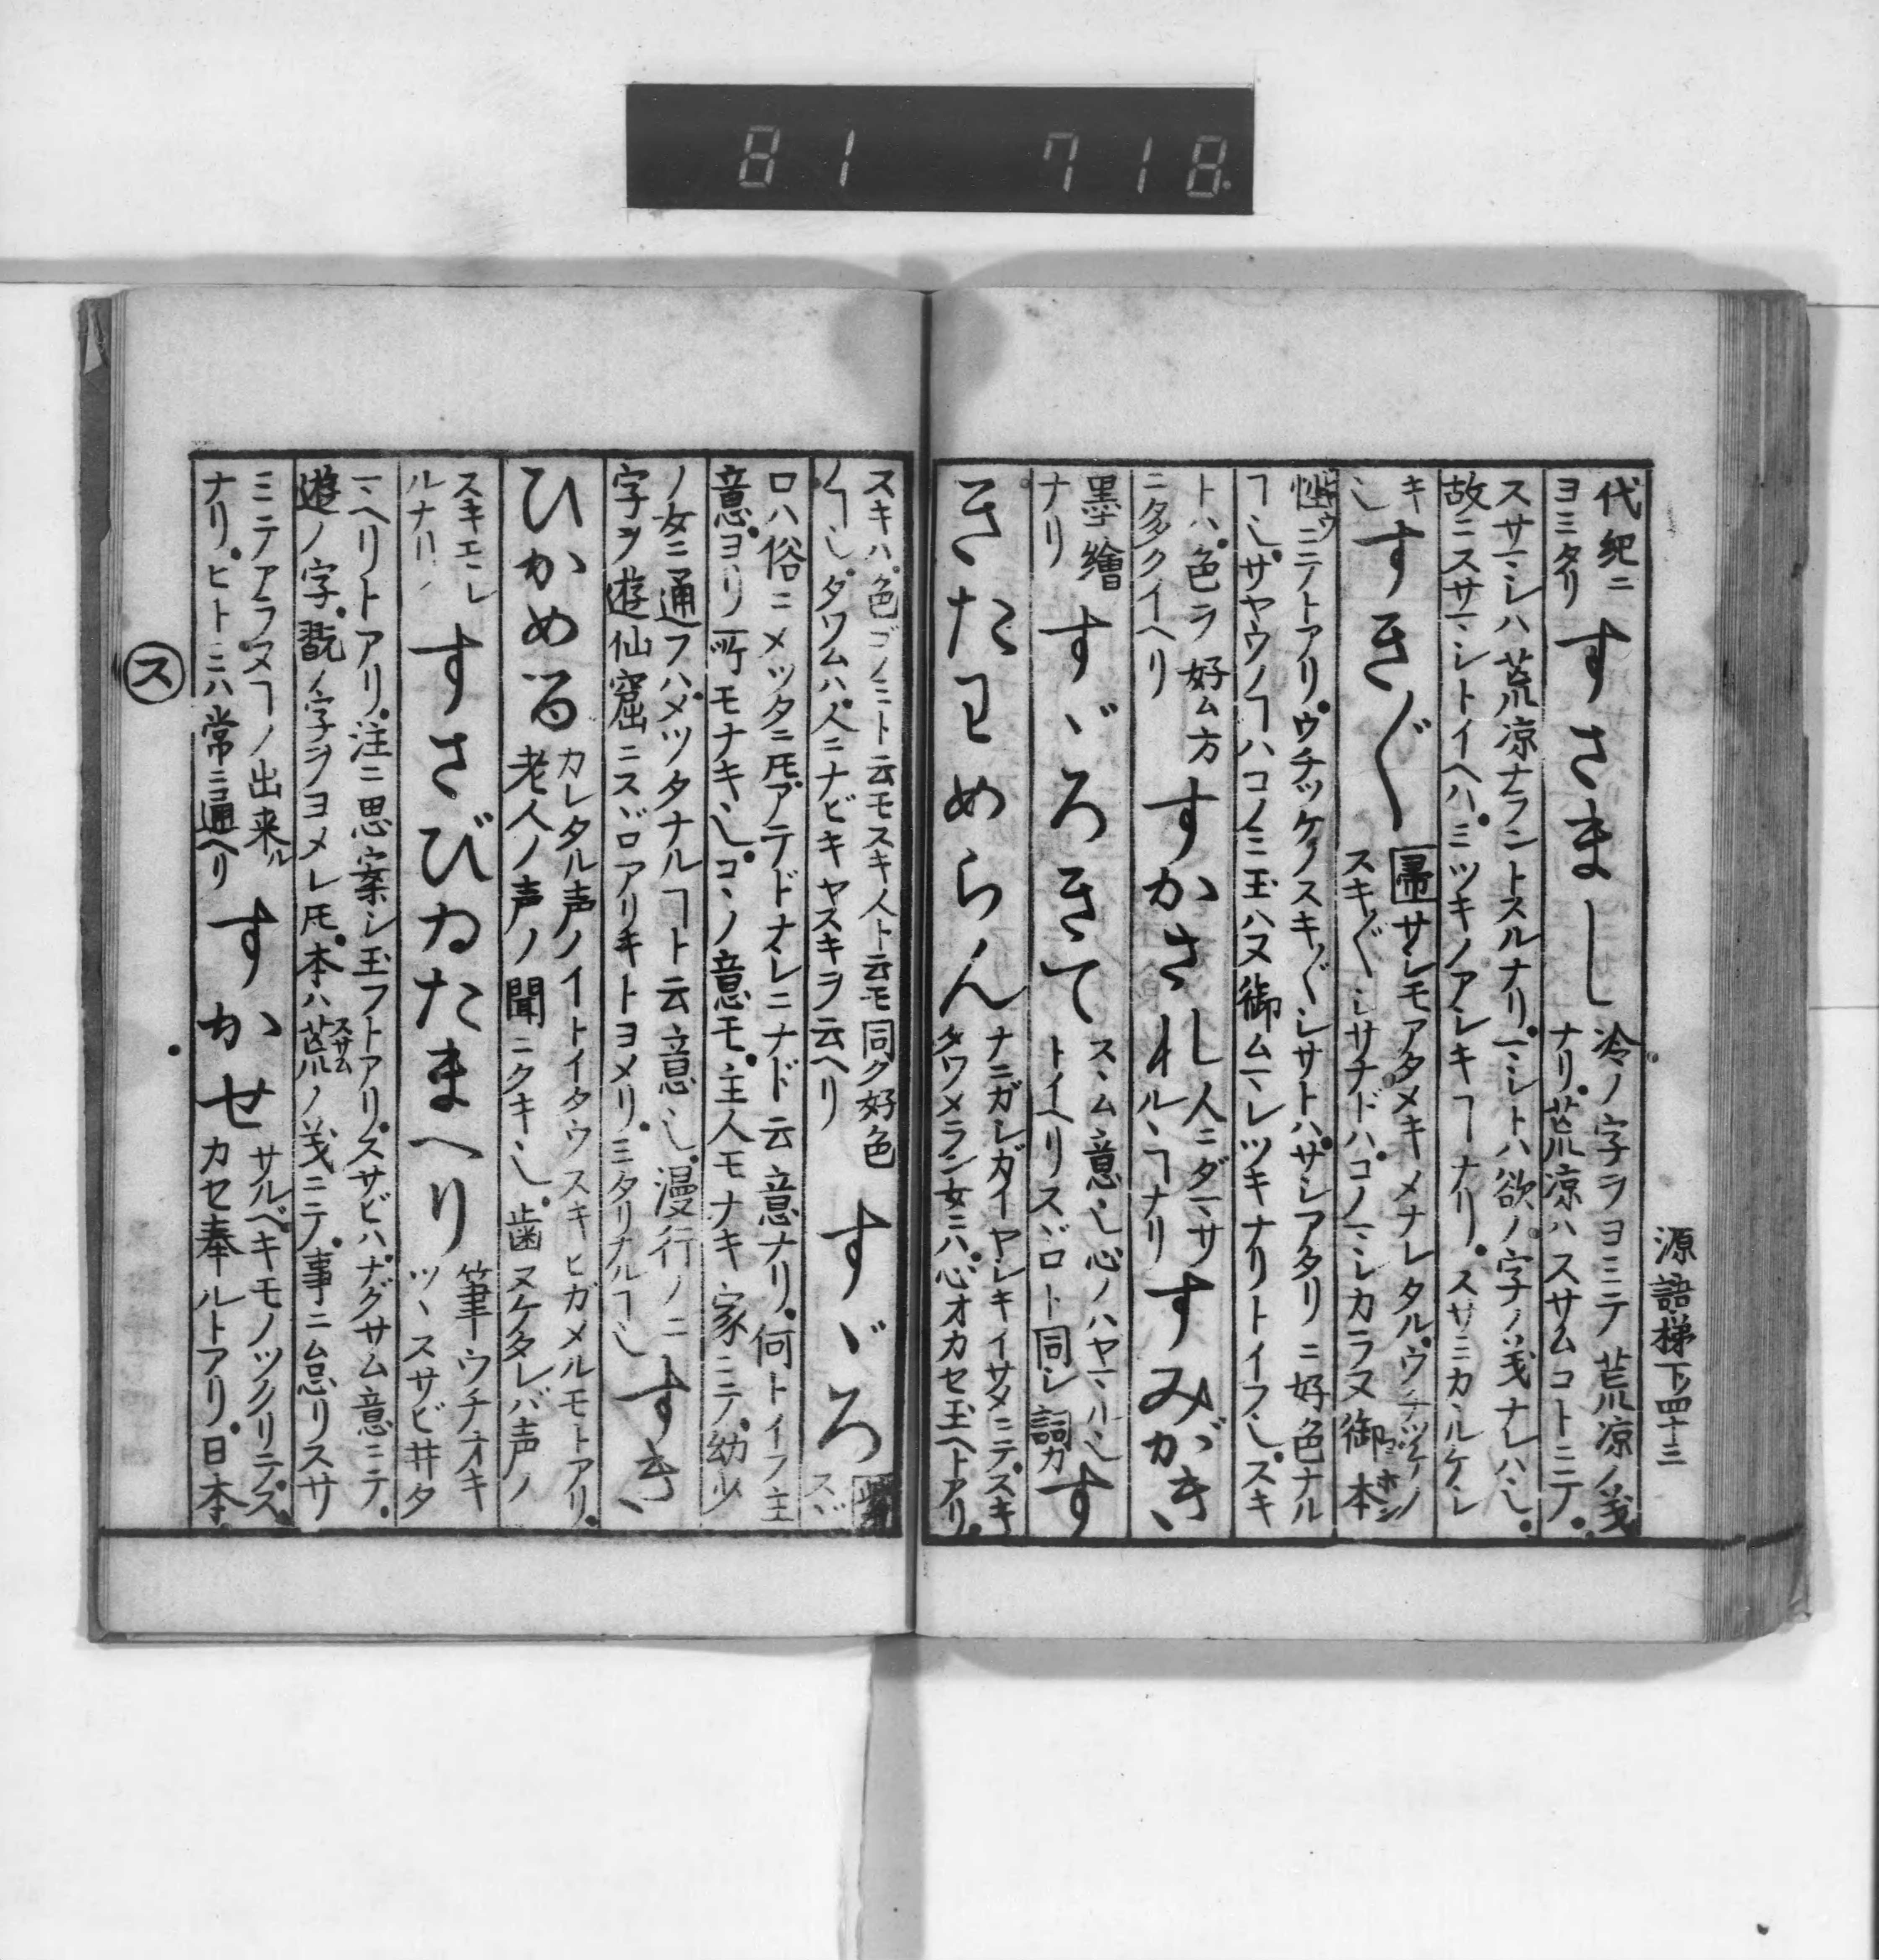 81 718
源語梯下ノ四十三
代紀ニ
ヨミタリ
すさまし
冷ノ字ヲヨミテ荒凉ノ義
ナリ。荒凉ハスサムコトニテ。
スサマシハ荒凉ナラントスルナリ。マシトハ欲ノ字ノ義ナレハ也。
故ニスサマシトイヘハ。ミツキノアシキヿナリ。スサミカルケシ
キ
也
すき〴〵
帚
サレモアタメキメナレタル。ウチツケノ
スキ〴〵シサナドハ。コノマシカラヌ御本
性ニテトアリ。ウチツケノスキ〴〵シサトハ。サシアタリニ好色ナル
ヿ也。サヤウノヿハコノミ玉ハヌ御ムマレツキナリトイフ也。スキ
トハ。色ヲ好ム方
ニ多クイヘリ
すかされ
人ニダマサ
ルヽヿナリ
すみがき
墨繪
ナリ
すゞろきて
スヽム意也心ノハヤマル也
トイヘリスヾロト同シ詞カ
す
きたわめらん
ナニガシガイヤシキイサメニテ。スキ
タワメラン女ニハ。心オカセ玉ヘトアリ。
スキハ。色ゴノミト云モスキ人ト云モ同ク好色
ノヿ也。タワムハ。人ニナビキヤスキヲ云ヘリ
すゞろ
紫
スヾ
ロハ俗ニメツタニ𪜈アテドナシニナド云意ナリ。何トイフ主
意。ヨリ所モナキ也。コヽノ意モ。主人モナキ家ニテ。幼少
ノ女ニ通フハ。メツタナルヿト云意也。漫行ノニ
字ヲ遊仙窟ニスヾロアリキトヨメリ。ミタリナルヿ也
すき
ひかめる
カレタル声ノイトイタウスキヒガメルモトアリ。
老人ノ声ノ聞ニクキ也。歯ヌケタレバ声ノ
スキエシ
ルナリ
すさびゐたまへり
筆ウチオキ
ツヽスサビ井タ
マヘリトアリ。注ニ思案シ玉フトアリ。スサビハ。ナグサム意ニテ。
遊ノ字。翫ノ字ヲヨメレ𪜈。本ハ荒スサムノ義ニテ。事ニ怠リスサ
ミテアラヌヿノ出来ル
ナリ。ヒトミハ常ニ通ヘリ
すかせ
サルベキモノツクリテ。ス
カセ奉ルトアリ。日本
ス